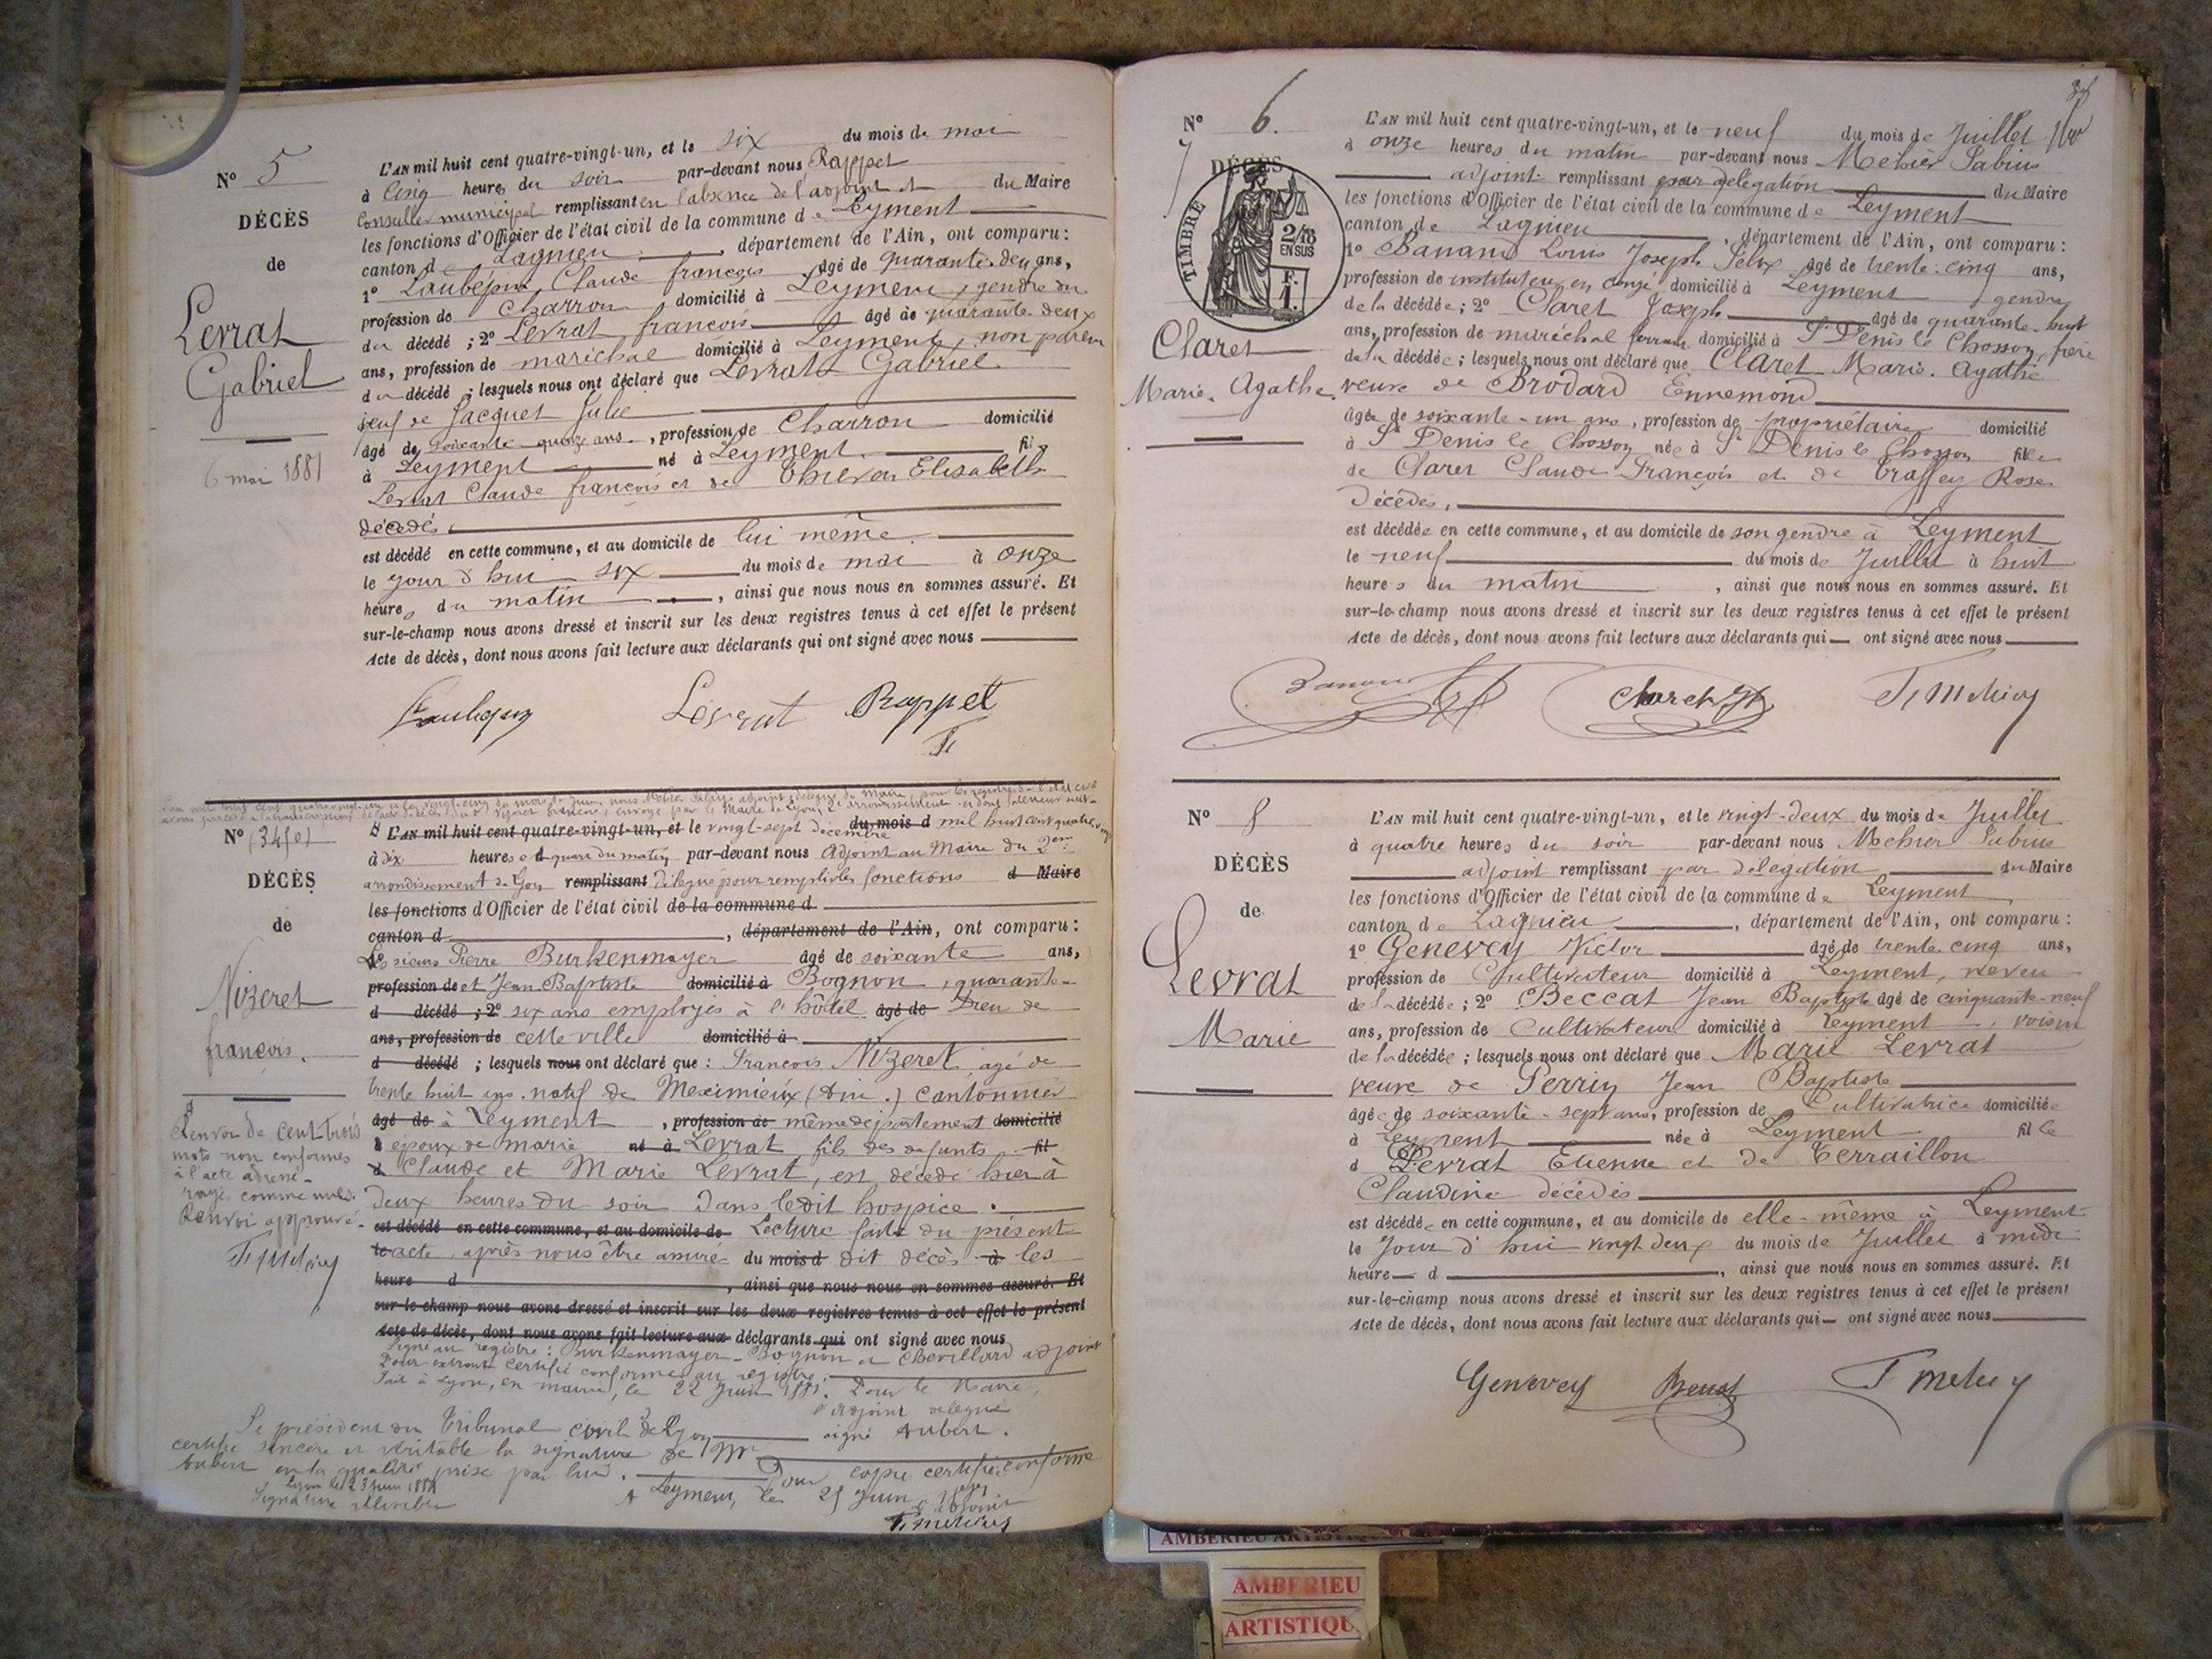 N° 5
DÉCÈS
de
Levrat
Gabriel
6 mai 1881
L'AN mil huit cent quatre-vingt-un, et le six du mois de mai
à Cinq heures du soir par-devant nous Rappet
Conseiller municipal remplissant en l'absence de l'adjoint et du Maire
les fonctions d'Officier de l'état civil de la commune de Leyment
canton de Lagnieu, département de l'Ain, ont comparu:
1° Laubépin Claude françois âgé de quarante-deux ans,
profession de Charron, domicilié à Leyment, gendre du
du décédé; 2° Levrat françois âgé de quarante-deux
ans, profession de maréchal domicilié à Leyment, non parent
du décédé; lesquels nous ont déclaré que Levrat Gabriel
veuf de Jacquet Julie
âgé de Soixante quinze ans, profession de Charron domicilié
à Leyment né à Leyment. fils
Levrat Claude françois et de Elisabeth
décédés
est décédé en cette commune, et au domicile de lui même.
le jour d'hui six du mois de mai à onze
heures du matin, ainsi que nous nous en sommes assuré. Et
sur-le-champ nous avons dressé et inscrit sur les deux registres tenus à cet effet le présent
Acte de décès, dont nous avons fait lecture aux déclarants qui ont signé avec nous
Levrat Rappet
N° 34 bis
DÉCÈS
de
Nizeret
françois.
Renvoi de Cent-trois
mots non conformes
à l'acte adressé
rayés comme nuls.
Renvoi approuvé.
L'AN mil huit cent quatre-vingt-un, et le vingt-sept décembre du mois d mil huit cent quatre-vingt
à dix heures et quart du matin par-devant nous Adjoint au Maire du 2em
arrondissement de Lyon remplissant délégué pour remplir les fonctions d Maire
les fonctions d'Officier de l'état civil de la commune d
canton d, département de l'Ain, ont comparu:
Les sieurs Pierre Burkenmayer âgé de soixante ans,
profession de et Jean Baptiste domicilié à Bognon, quarante-
d décédé; 2° six ans employés à l'hôtel âgé de Dieu de
ans, profession de cette ville domicilié à
d décédé; lesquels nous ont déclaré que: François Nizeret, agé de
trente huit ans natif de Meximieux (Ain.) Cantonnier
âgé de à Leyment, profession de même département domicilié
à époux de marie né à Levrat, fils des défunts fil
d Claude et Marie Levrat, est décédé hier à
deux heures du soir dans ledit hospice.
est décédé en cette commune, et au domicile de Lecture faite du présent
le acte, après nous être assuré du mois d dit décès à les
heure d, ainsi que nous nous en sommes assuré. Et
sur-le-champ nous avons dressé et inscrit sur les deux registres tenus à cet effet le présent
Acte de décès, dont nous avons fait lecture aux déclarants qui ont signé avec nous
Signé au registre: Burkenmayer - Bognon et Chevillard adjoint
Pour extrait certifié conforme au registre:
Fait à Lyon, en mairie, le 22 Juin 1881. Pour le Maire,
l'adjoint délégué
signé Aubert.
Le président du Tribunal civil de Lyon
certifie sincère et véritable la signature de Mr
Aubert en la qualité prise par lui.
Lyon le 23 Juin 1881
Signature illisible
Pour copie certifiée conforme
A Leyment, le 25 Juin 1881
l'adjoint
N° 6.
DÉCÈS
TIMBRE
2/10
EN SUS
F.
1.
Claret
Marie. Agathe.
L'AN mil huit cent quatre-vingt-un, et le neuf du mois de Juillet
à onze heures du matin par-devant nous Mehier Sabin
adjoint remplissant par délégation du Maire
les fonctions d'Officier de l'état civil de la commune de Leyment
canton de Lagnieu, département de l'Ain, ont comparu:
1° Banand Louis Joseph Félix âgé de trente-cinq ans,
profession de instituteur en congé domicilié à Leyment gendre
de la décédée; 2° Claret Joseph âgé de quarante-huit
ans, profession de maréchal ferrant domicilié à St Denis le Chosson, frère
de la décédée; lesquels nous ont déclaré que Claret Marie. Agathe
veuve de Brodard Ennemond
âgée de soixante-un ans, profession de propriétaire domicilié
à St Denis le Chosson née à St Denis le Chosson fille
de Claret Claude François et de Rose
Décédés,
est décédée en cette commune, et au domicile de son gendre à Leyment
le neuf du mois de Juillet à huit
heures du matin, ainsi que nous nous en sommes assuré. Et
sur-le-champ nous avons dressé et inscrit sur les deux registres tenus à cet effet le présent
Acte de décès, dont nous avons fait lecture aux déclarants qui ont signé avec nous
Claret
N° 8
DÉCÈS
de
Levrat
Marie
L'AN mil huit cent quatre-vingt-un, et le vingt-deux du mois de Juillet
à quatre heures du soir par-devant nous Mehier Sabin
adjoint remplissant par délégation du Maire
les fonctions d'Officier de l'état civil de la commune de Leyment
canton de Lagnieu, département de l'Ain, ont comparu:
1° Genevey Victor âgé de trente-cinq ans,
profession de Cultivateur domicilié à Leyment, neveu
de la décédée; 2° Beccat Jean Baptiste âgé de cinquante-neuf
ans, profession de Cultivateur domicilié à Leyment, voisin
de la décédée; lesquels nous ont déclaré que Marie Levrat
veuve de Perrin Jean Baptiste
âgée de soixante-sept ans, profession de Cultivatrice domiciliée
à Leyment née à Leyment fille
d Levrat Etienne et de Terraillon
Claudine décédés
est décédée en cette commune, et au domicile de elle-même à Leyment
le Jour d'hui vingt deux du mois de Juillet à midi
heure d, ainsi que nous nous en sommes assuré. Et
sur-le-champ nous avons dressé et inscrit sur les deux registres tenus à cet effet le présent
Acte de décès, dont nous avons fait lecture aux déclarants qui ont signé avec nous
Genevey
AMBERIEU ARTISTIQUE
AMBERIEU
ARTISTIQU